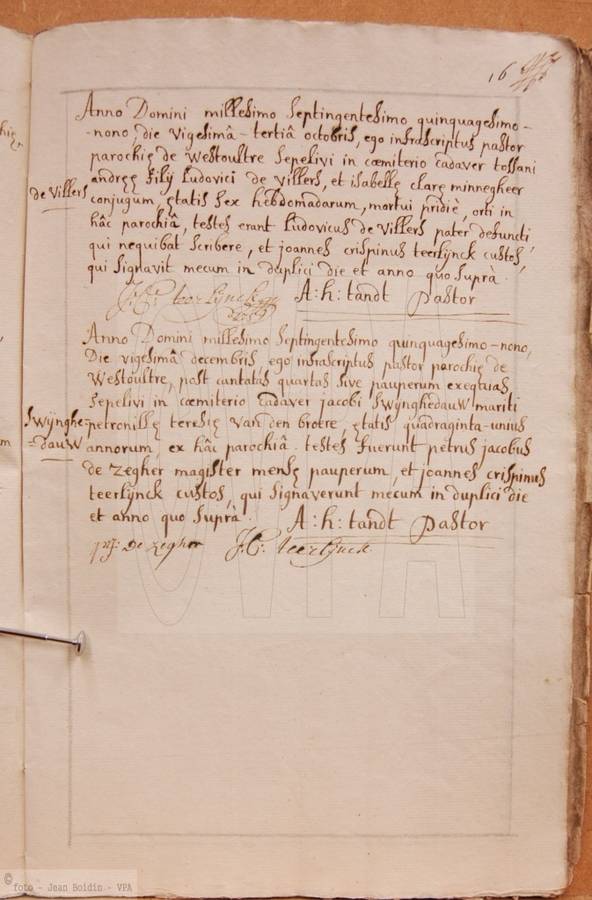 16
Anno Domini millesimo septingentesimo quinquagesimo-
-nono, die vigesimâ-tertiâ octobris, ego infrascriptus pastor
parochię de Westoultre sepelivi in cœmiterio cadaver tossani
andręę filij Ludovici de Villers, et isabellę clarę minnegheer
de Villers
conjugum, ętatis sex hebdomadarum, mortui pridiè, orti in
hâc parochiâ, testes erant Ludovicus de Villers pater defuncti,
qui nequibat scribere, et joannes crispinus teerlynck custos,
qui signavit mecum in duplici die et anno quo suprà.
J:C: teerlynck
1759
A:h:tandt pastor
Anno Domini millesimo septingentesimo quinquagesimo-nono,
Die vigesimâ decembris ego infrascriptus pastor parochię de
Westoultre, post cantatas quartas sive pauperum exequias,
sepelivi in cœmiterio cadaver jacobi swÿnghedauw mariti
swÿnghe-
=dauw
petronillę teresię van den broere, ętatis quadraginta-unius
annorum, ex hâc parochiâ. testes fuerunt petrus jacobus
de zegher magister mensę pauperum, et joannes crispinus
teerlÿnck custos, qui signaverunt mecum in duplici die
et anno quo suprà.
A:h:tandt pastor
p:j: De Zegher J:C: teerlÿnck
VPA
© foto - Jean Boidin - VPA